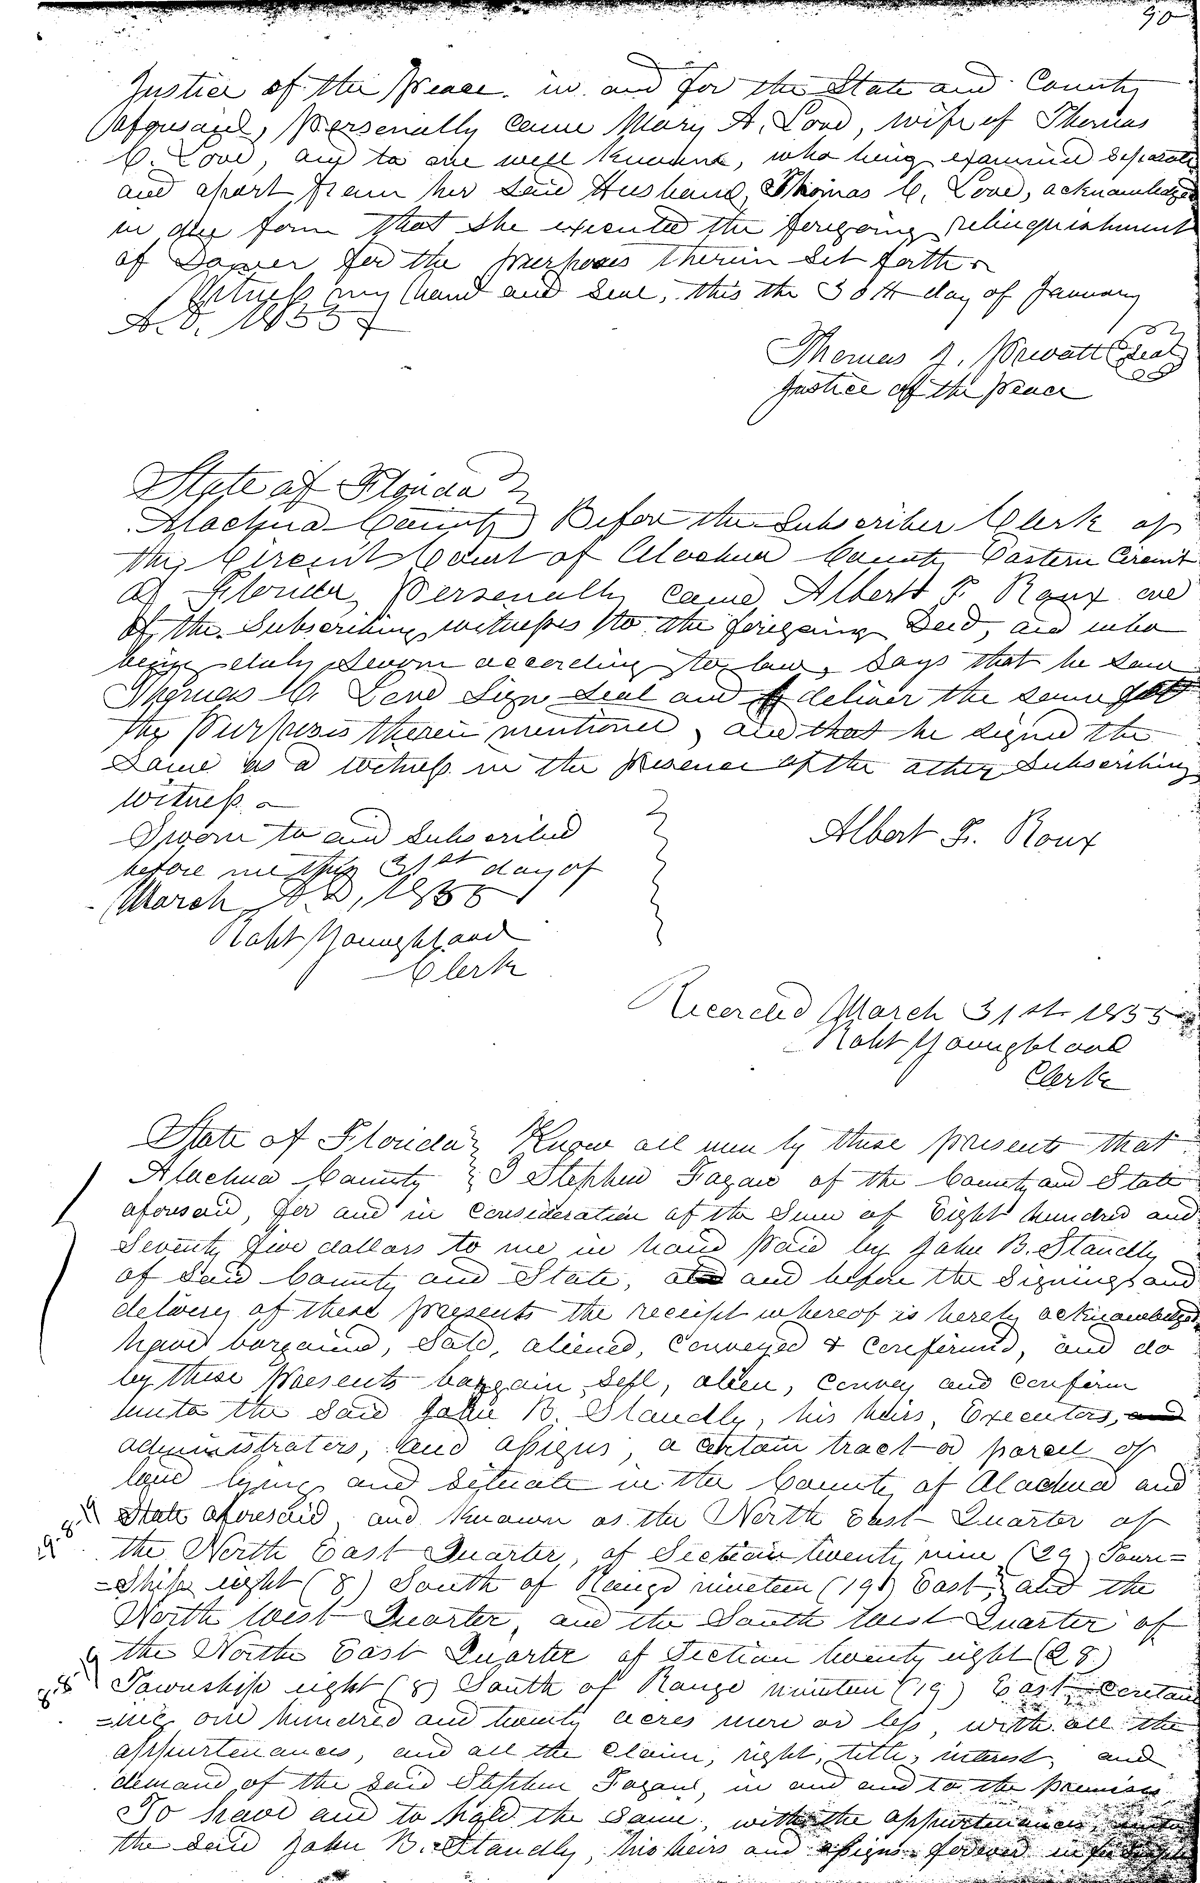 90
Justice of the Peace in and for the State and County
aforesaid, personally came Mary A. Love, wife of Thomas
C. Love, and to me well known, who being examined separate
and apart from her said Husband, Thomas C. Love, acknowledged
in due form that she executed the foregoing relinquishment
of Dower for the purposes therein set forth
Witness my hand and seal, this the 30th day of January
A.D. 1855
Thomas J. Prevatt (seal)
Justice of the Peace
State of Florida
Alachua County Before the Subscriber Clerk of
the Circuit Court of Alachua County Eastern Circuit
of Florida, personally came Albert F. Roux one
of the Subscribing witnesses to the foregoing Deed, and who
being duly sworn according to law, says that he saw
Thomas C. Love Sign seal and deliver the same for
the purposes therein mentioned, and that he signed the
same as a witness in the presence of the other Subscribing
witness
Sworn to and subscribed
Albert F. Roux
before me this 31st day of
March A.D, 1855
Robt Youngblood
Clerk
Recorded March 31st 1855
Robt Youngblood
Clerk
State of Florida Know all men by these presents that
Alachua County I Stephen Fagan of the County and State
aforesaid, for and in consideration of the sum of Eight hundred and
Seventy five dollars to me in hand paid by John B. Standly
of said County and State, and before the signing and
delivery of these presents the receipt whereof is hereby acknowledged,
have bargained, Sold, aliened, conveyed & confirmed, and do
by these presents bargain, sell, alien, convey and confirm
unto the said John B. Standly, his heirs, Executors, and
administrators, and assigns, a certain tract or parcel of
land lying and situate in the County of Alachua and
29-8-19 State aforesaid, and known as the North East Quarter of
the North East Quarter, of Section twenty nine (29) Town=
=ship eight (8) South of Range nineteen (19) East, and the
North West Quarter, and the South West Quarter of
the North East Quarter of Section twenty eight (28)
8-8-19 Township eight (8) South of Range nineteen (19) East contain
=ing one hundred and twenty acres more or less, with all the
appurtenances, and all the claim, right, title, interest, and
demand of the said Stephen Fagan, in and to the premises
To have and to hold the same, with the appurtenances, unto
the said John B. Standly, his heirs and assigns forever in fee simple